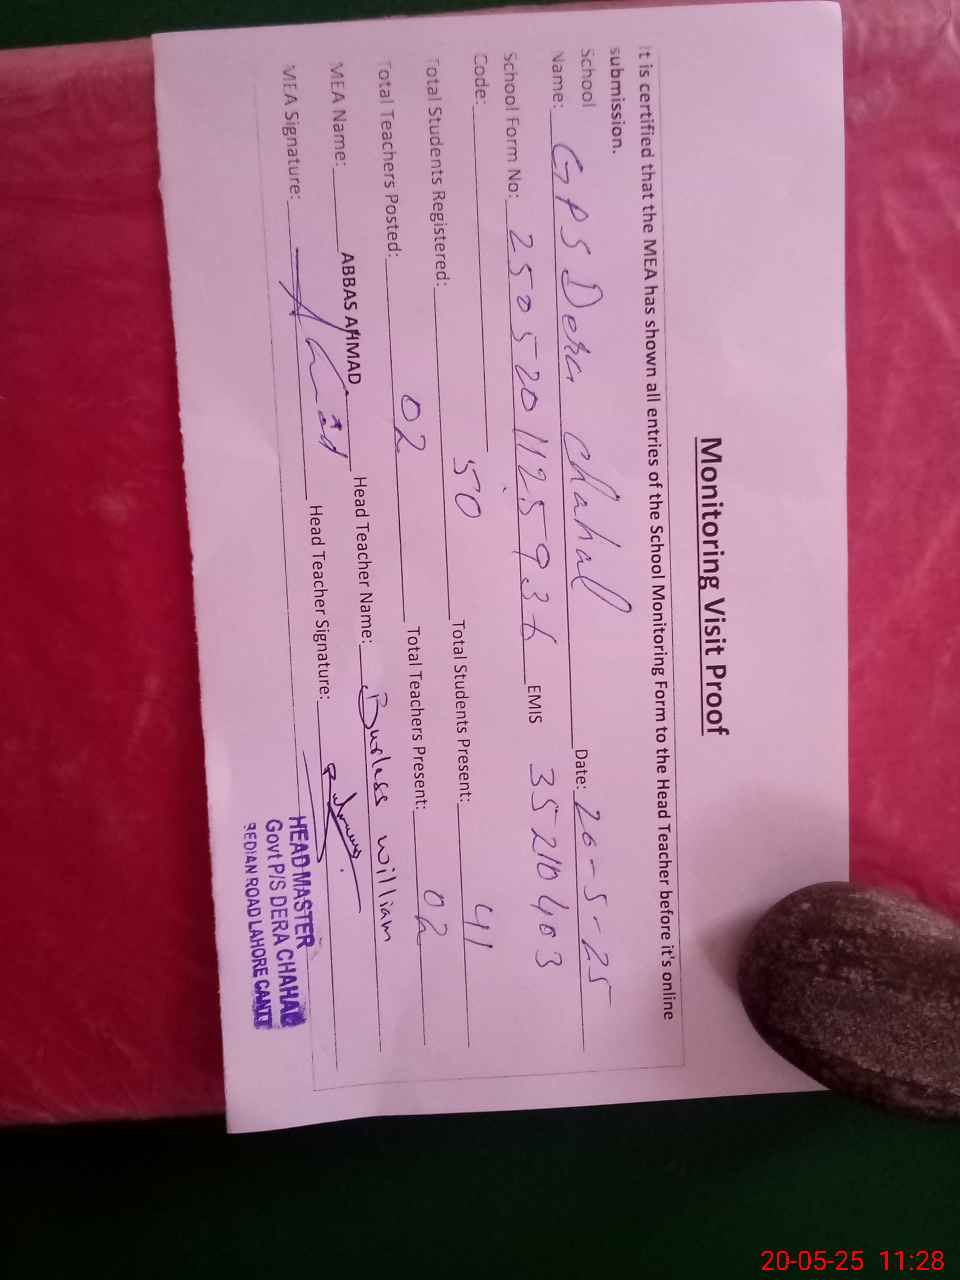 Monitoring Visit Proof
It is certified that the MEA has shown all entries of the School Monitoring Form to the Head Teacher before it's online
submission.
School
Name: GPS Dera chahal Date: 20-5-25
School Form No: 25052011259936 EMIS 35210403
Code:
Total Students Registered: 50 Total Students Present: 41
Total Teachers Posted: 02 Total Teachers Present: 02
MEA Name: ABBAS AHMAD Head Teacher Name: william
MEA Signature: Head Teacher Signature:
HEAD MASTER
Govt P/S DERA CHAHAL
BEDIAN ROAD LAHORE CANTT
20-05-25 11:28